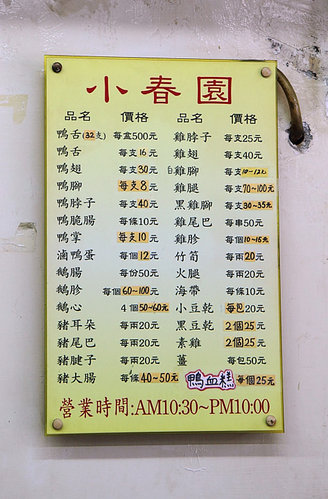 小春園
品名 價格 品名 價格
鴨舌(32支) 每盒500元 雞脖子 每支25元
鴨舌 每支16元 雞翅 每支40元
鴨翅 每支30元 白雞腳 每支10-12元
鴨腳 每支8元 雞腿 每支70~100元
鴨脖子 每支40元 黑雞腳 每支30-35元
鴨腸 每條10元 雞尾巴 每串50元
鴨掌 每支10元 雞胗 每個10-15元
滷鴨蛋 每個12元 竹筍 每兩20元
鵝腸 每份50元 火腿 每兩20元
鵝胗 每個60~100元 海帶 每條10元
鵝心 4個50-60元 小豆乾 每包20元
豬耳朵 每兩20元 黑豆乾 2個25元
豬尾巴 每兩20元 素雞 2個25元
豬腱子 每兩20元 薑 每包50元
豬大腸 每條40-50元 鴨血糕 每個25元
營業時間:AM10:30~PM10:00